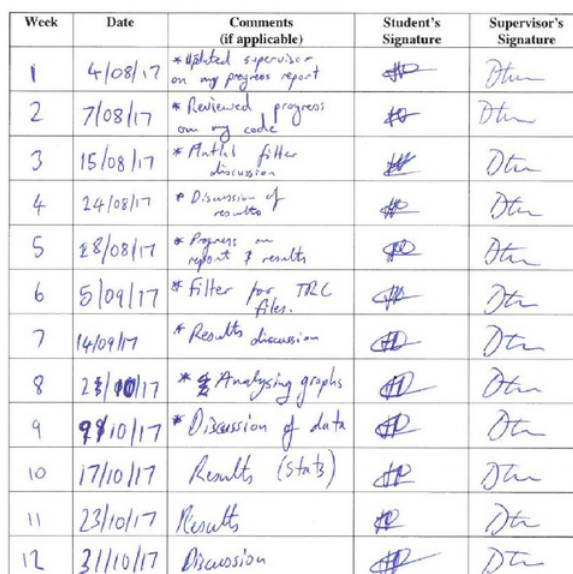 Week Date Comments (if applicable) Student's Signature Supervisor's Signature
1 4/08/17 * Updated supervisor
on my progress report
2 7/08/17 * Reviewed progress
on my code
3 15/08/17 * Matlab filter
discussion
4 24/08/17 * Discussion of
results
5 28/08/17 * Progress on
report & results
6 5/09/17 * Filter for TRC
files.
7 14/09/17 * Results discussion
8 * Analysing graphs
9 /10/17 * Discussion of data
10 17/10/17 Results (stats)
11 23/10/17 Results
12 31/10/17 Discussion